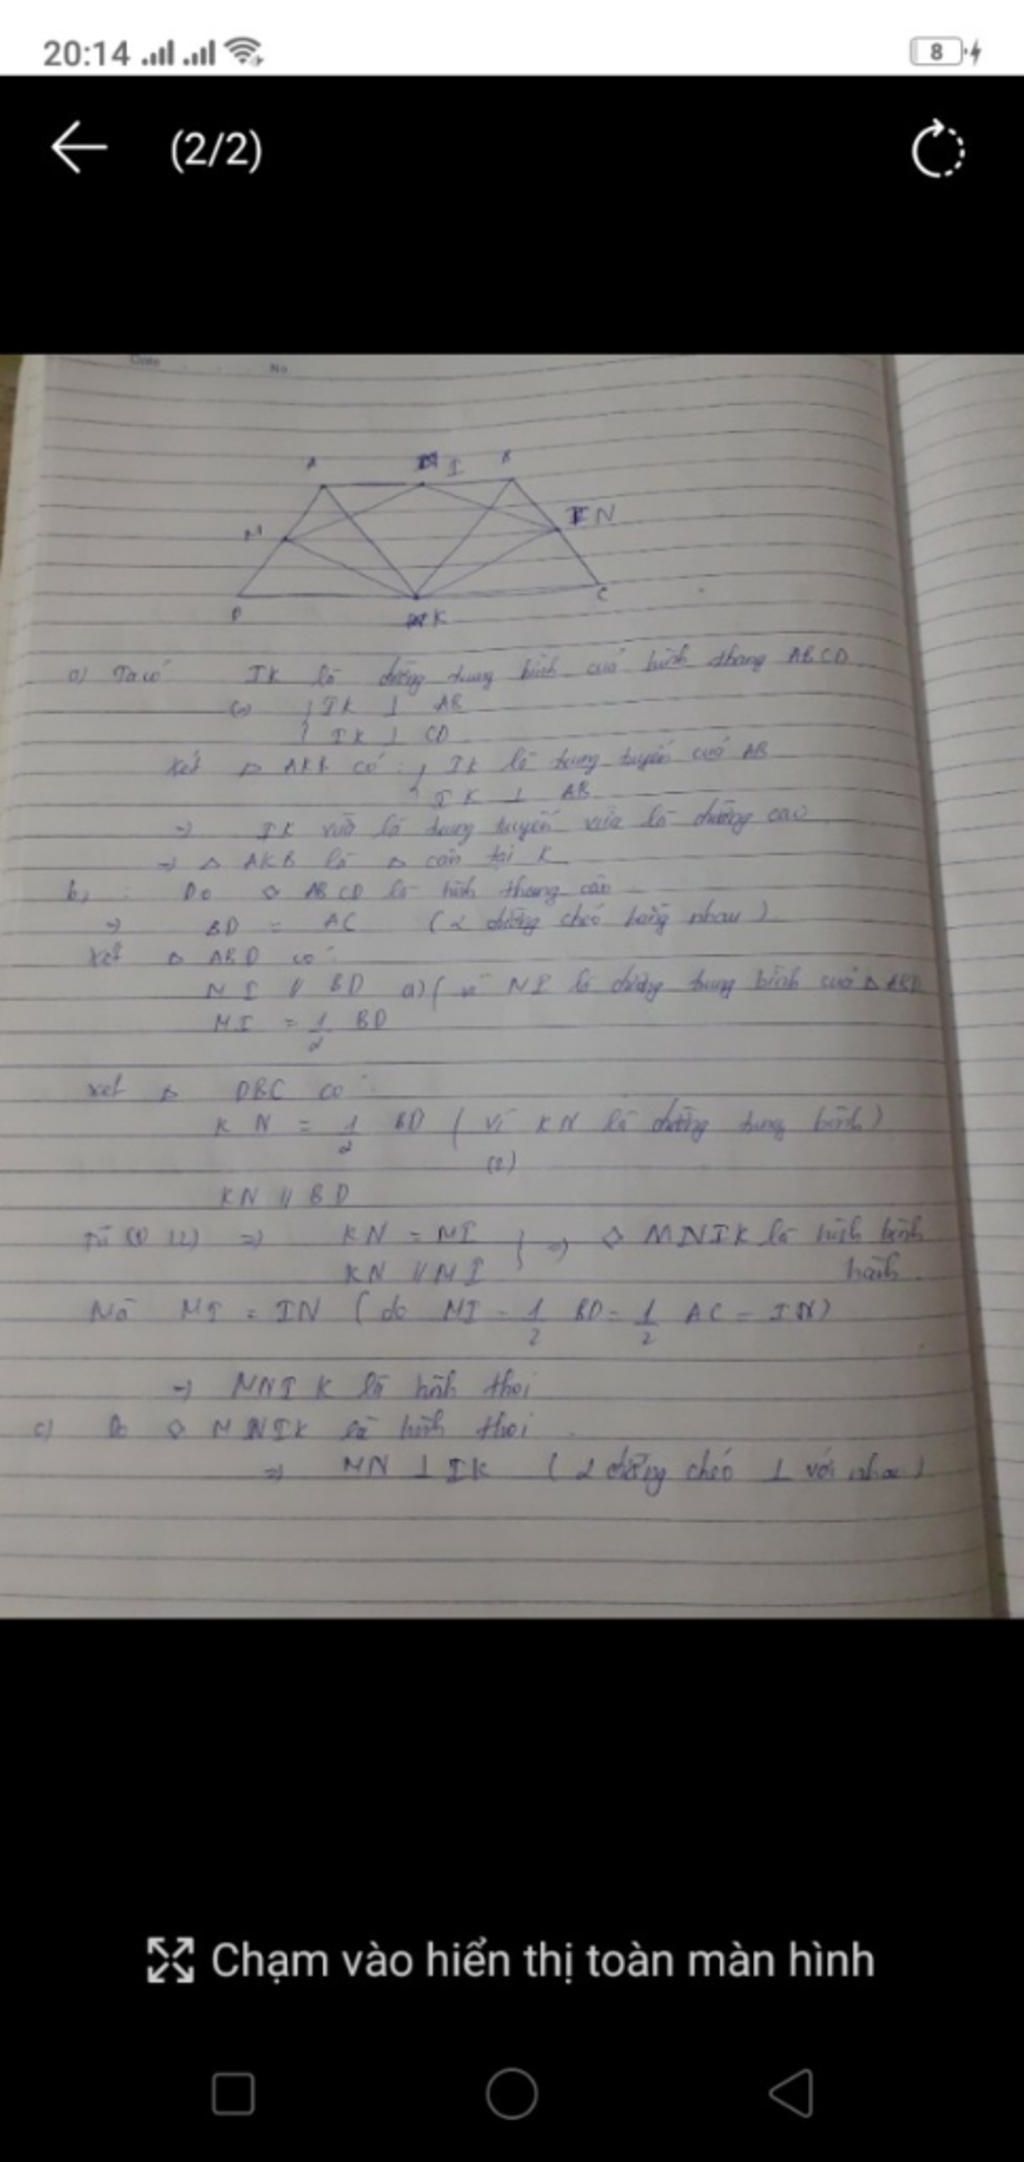 20:14
8
(2/2)
Date
No
A I B
M N
D K C
a) Ta có IK là đường trung bình của hình thang ABCD
IK ⊥ AB
IK ⊥ CD
Xét Δ AKB có : IK là trung tuyến của AB
IK ⊥ AB
=> IK vừa là trung tuyến vừa là đường cao
=> Δ AKB là Δ cân tại K
b, Do ◇ ABCD là hình thang cân
=> BD = AC (2 đường chéo bằng nhau)
Xét Δ ABD có :
MI // BD (vì MI là đường trung bình của Δ ABD
MI = 1/2 BD
Xét Δ DBC có :
KN = 1/2 BD (vì KN là đường trung bình)
(2)
KN // BD
Từ => KN = MI
KN // MI } => ◇ MNIK là hình bình
hành.
Mà MI = IN (do MI = 1/2 BD = 1/2 AC = IN)
=> MNIK là hình thoi
c) Do ◇ MNIK là hình thoi
=> MN ⊥ IK (2 đường chéo ⊥ với nhau)
Chạm vào hiển thị toàn màn hình